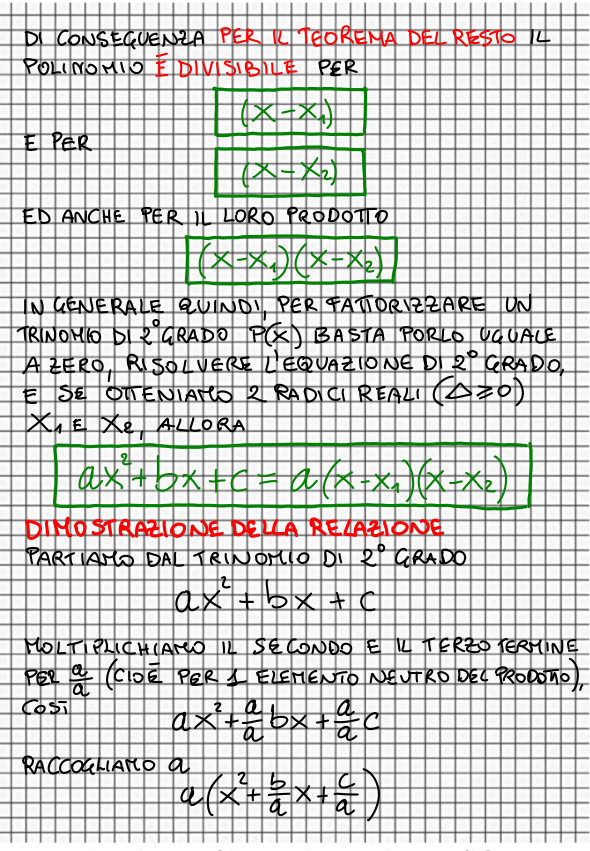 DI CONSEGUENZA PER IL TEOREMA DEL RESTO IL
POLINOMIO È DIVISIBILE PER
(x-x₁)
E PER
(x-x₂)
ED ANCHE PER IL LORO PRODOTTO
(x-x₁)(x-x₂)
IN GENERALE QUINDI, PER FATTORIZZARE UN
TRINOMIO DI 2° GRADO P(x) BASTA PORLO UGUALE
A ZERO, RISOLVERE L'EQUAZIONE DI 2° GRADO,
E SE OTTENIAMO 2 RADICI REALI (Δ≥0)
X₁ E X₂, ALLORA
ax²+bx+c = a(x-x₁)(x-x₂)
DIMOSTRAZIONE DELLA RELAZIONE
PARTIAMO DAL TRINOMIO DI 2° GRADO
ax²+bx+c
MOLTIPLICHIAMO IL SECONDO E IL TERZO TERMINE
PER a/a (CIOÈ PER 1 ELEMENTO NEUTRO DEL PRODOTTO),
COSÌ
ax²+a/a bx+a/a c
RACCOGLIAMO a
a(x²+b/a x+c/a)